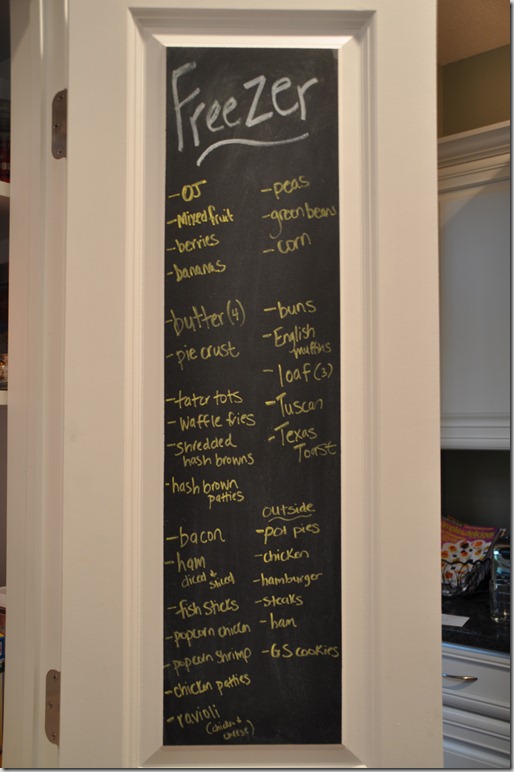 Freezer
- OJ
- Mixed fruit
- berries
- bananas
- butter (4)
- pie crust
- tater tots
- Waffle fries
- Shredded
hash browns
- hash brown
patties
- bacon
- ham
diced & sliced
- fish sticks
- popcorn chicken
- popcorn shrimp
- chicken patties
- ravioli
(chicken &
cheese)
- peas
- green beans
- corn
- buns
- English
muffins
- loaf (3)
- Tuscan
- Texas
Toast
outside
- pot pies
- chicken
- hamburger
- steaks
- ham
- GS cookies